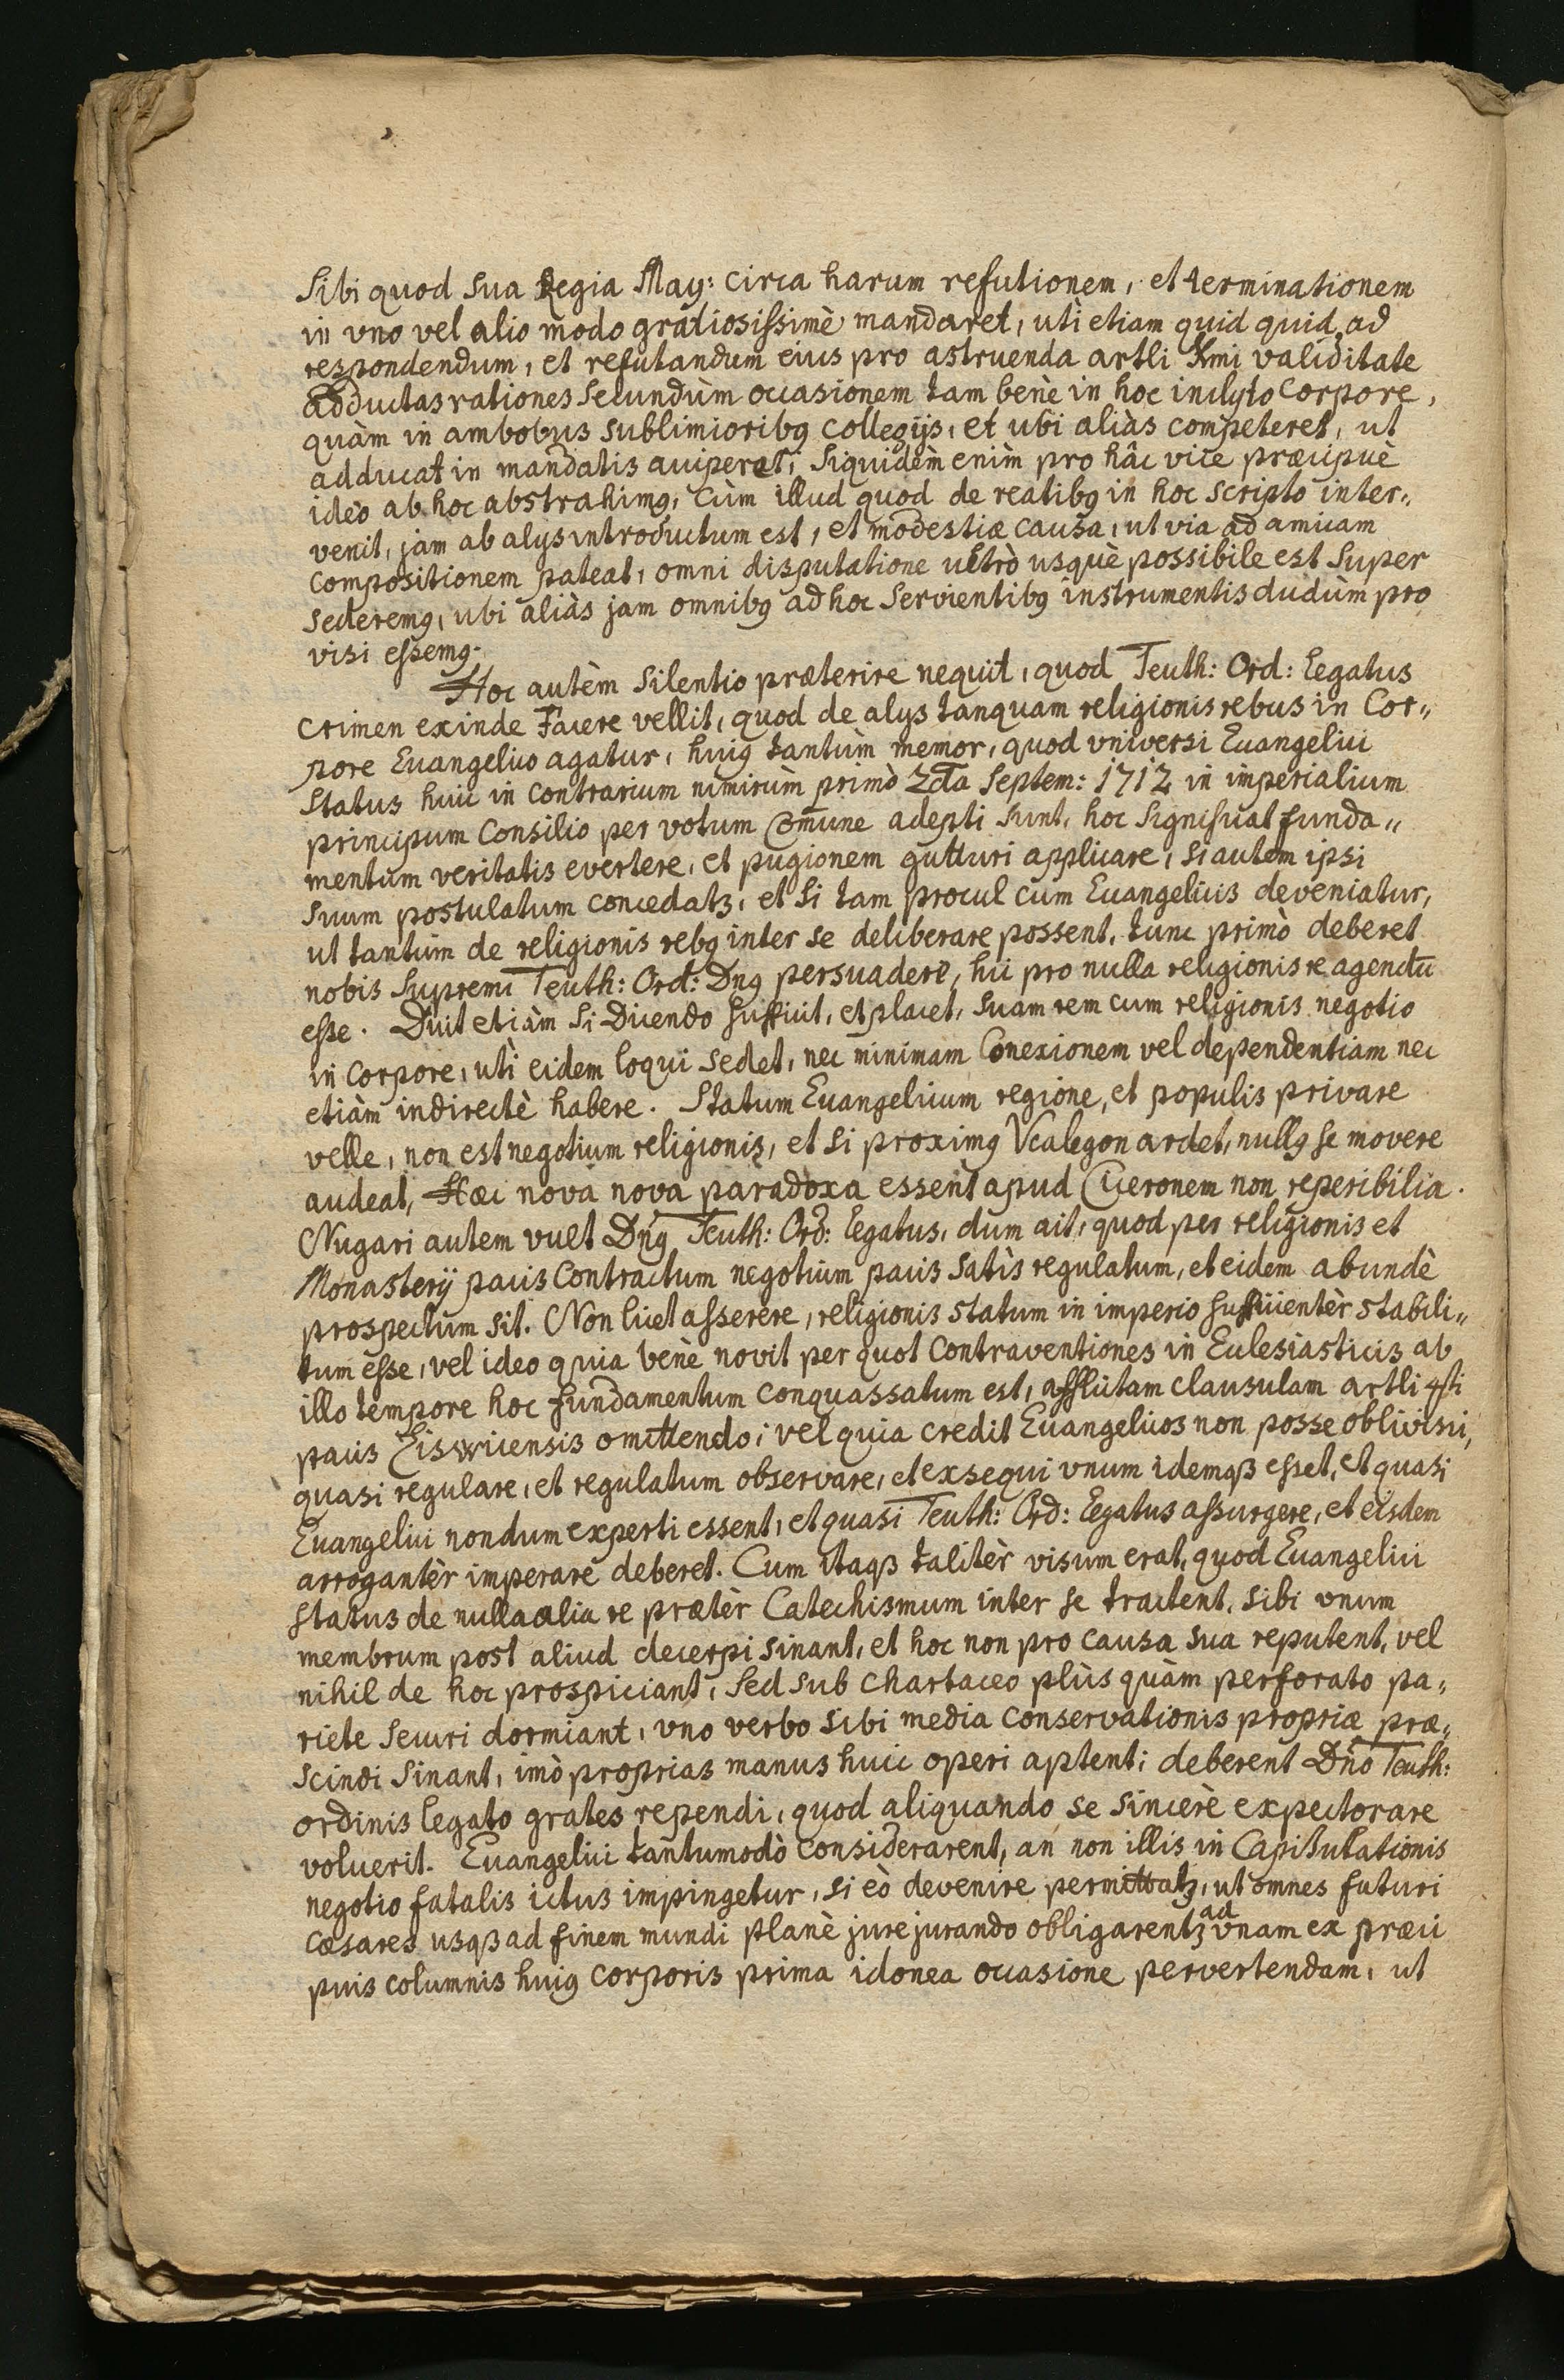 Sibi quod Sua Regia May: circa harum refutionem, et terminationem
in vno vel alio modo gratiosissimè mandaret, uti etiam quid quid ad
respondendum, et refutandum eius pro astruenda artli Xmi validitate
adductas rationes secundùm occasionem tam benè in hoc inclyto Corpore,
quàm in ambobus Sublimioribꝰ Collegijs, et ubi aliàs competeret, ut
adducat in mandatis acciperat; Siquidèm enim pro hâc vice præcipuè
ideò ab hoc abstrahimꝰ, Cùm illud quod de reatibꝰ in hoc Scripto inter„
venit, jam ab alys introductum est, et modestiæ causa, ut via ad amicam
compositionem pateat, omni disputatione ultrò usquè possibile est Super
sederemꝰ, ubi aliàs jam omnibꝰ ad hoc Servientibꝰ instrumentis dudùm pro
visi essemꝰ.
Hoc autèm Silentio præterire nequit, quod Teuth: Ord: Legatus
Crimen exinde Facere vellit, quod de alys tanquam religionis rebus in Cor„
pore Euangelico agatur, huiꝰ tantùm memor, quod vniversi Euangelici
Status huic in contrarium nimirùm primò 2da Septem: 1712 in imperialium
principum Consilio per votum Comune adepti sunt, hoc Significat funda„
mentum veritatis evertere, et pugionem gutturi applicare, si autem ipsi
Suum postulatum concedatꝫ, et Si tam procul cum Euangelicis deveniatur,
ut tantùm de religionis rebꝰ inter se deliberare possent, tunc primò deberet
nobis Supremi Teuth: Ord: Dnꝰ persuadere, hic pro nulla religionis re agendū
esse. Dicit etiàm Si Dicendo Sufficit, et placet, Suam rem cum religionis negotio
in Corpore, uti eidem loqui sedet, nec minimam Conexionem vel dependentiam nec
etiàm indirectè habere. Statum Euangelicum regione, et populis privare
velle, non est negotium religionis, et Si proximꝰ Vcalegon ardet, nullꝰ se movere
audeat, Hæc nova nova paradoxa essent apud Ciceronem non reperibilia.
Nugari autem vult Dnꝰ Teuth: Ord: Legatus, dum ait, quod per religionis et
Monasterij pacis Contractum negotium pacis Satìs regulatum, et eidem abundè
prospectum Sit. Non licet asserere, religionis statum in imperio Sufficientèr stabili„
tum esse, vel ideo quia benè novit per quot Contraventiones in Eclesiasticis ab
illo tempore hoc fundamentum conquassatum est, afflictam clausulam artli 4ti
pacis Riswicensis omittendo; vel quia credit Euangelicos non posse oblivisci,
quasi regulare, et regulatum observare, et exsequi vnum idemqꝫ esset, et quasi
Euangelici nondum experti essent, et quasi Teuth: Ord: Legatus assurgere, et eisdem
arrogantèr imperare deberet. Cum itaqꝫ talitèr visum erat, quod Euangelici
Status de nulla alia re prætèr Catechismum inter se tractent, sibi vnum
membrum post aliud decerpi sinant, et hoc non pro causa sua reputent, vel
nihil de hoc prospiciant, Sed sub chartaceo plùs quàm perforato pa„
riete Securi dormiant, vno verbo sibi media conservationis propriæ præ„
scindi Sinant, imò proprias manus huic operi aptent; deberent Dno Teuth:
ordinis legato grates rependi, quod aliquando se Sincerè expectorare
voluerit. Euangelici tantumodò considerarent, an non illis in Capitulationis
negotio fatalis ictus impingetur, si eò devenire permittatꝫ, ut omnes futuri
Cæsares usqꝫ ad finem mundi planè jurejurando obligarentꝫ ad vnam ex præci
puis columnis huiꝰ corporis prima idonea occasione pervertendam, ut